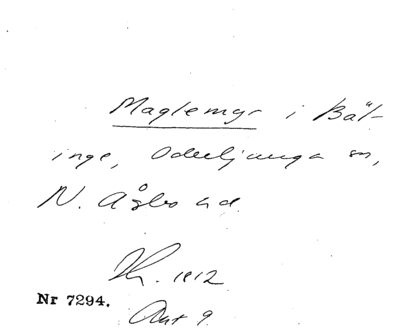 Maglemyr i Bäl-
inge, Oderljunga sn,
N. Åsbo hd.
Th. 1812
Nr 7294.
Akt 9